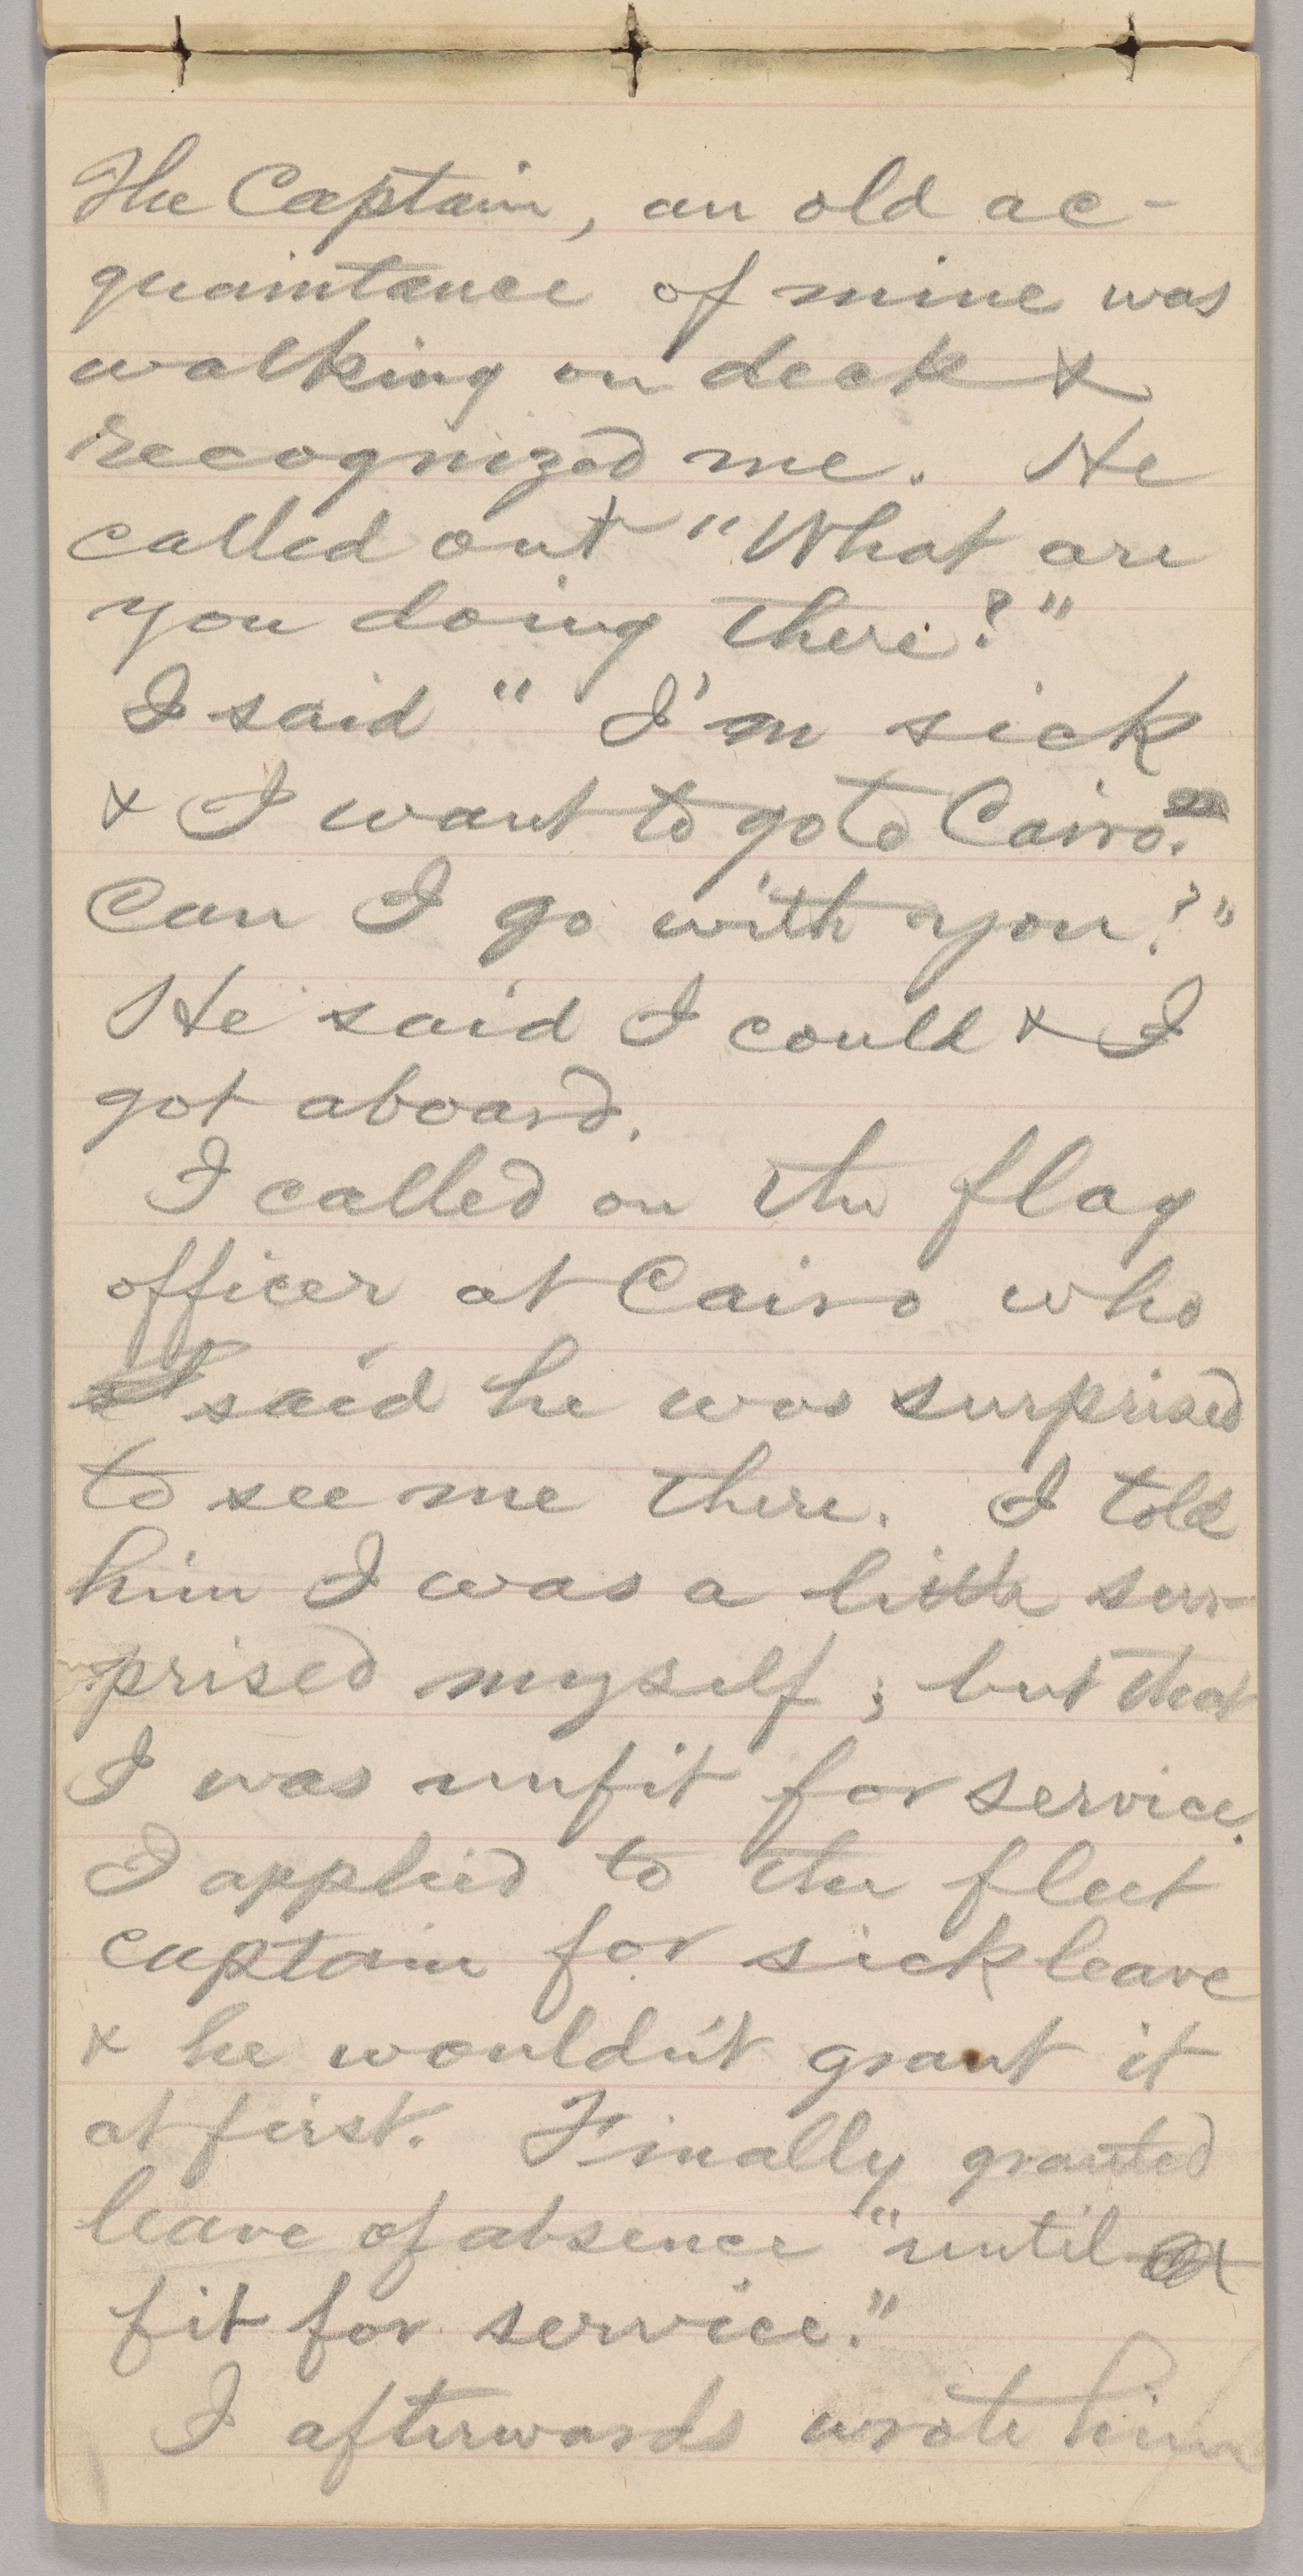 The Captain, an old ac-
quaintance of mine was
walking on deck &
recognized me. He
called out "What are
you doing there?"
I said " I'm sick
& I want to go to Cairo.
Can I go with you?"
He said I could & I
got aboard.
I called on the flag
officer at Cairo who
said he was surprised
to see me there. I told
him I was a little sur-
prised myself; but that
I was unfit for service.
I applied to the fleet
captain for sick leave
& he wouldn't grant it
at first. Finally granted
leave of absence "until
fit for service."
I afterwards wrote him